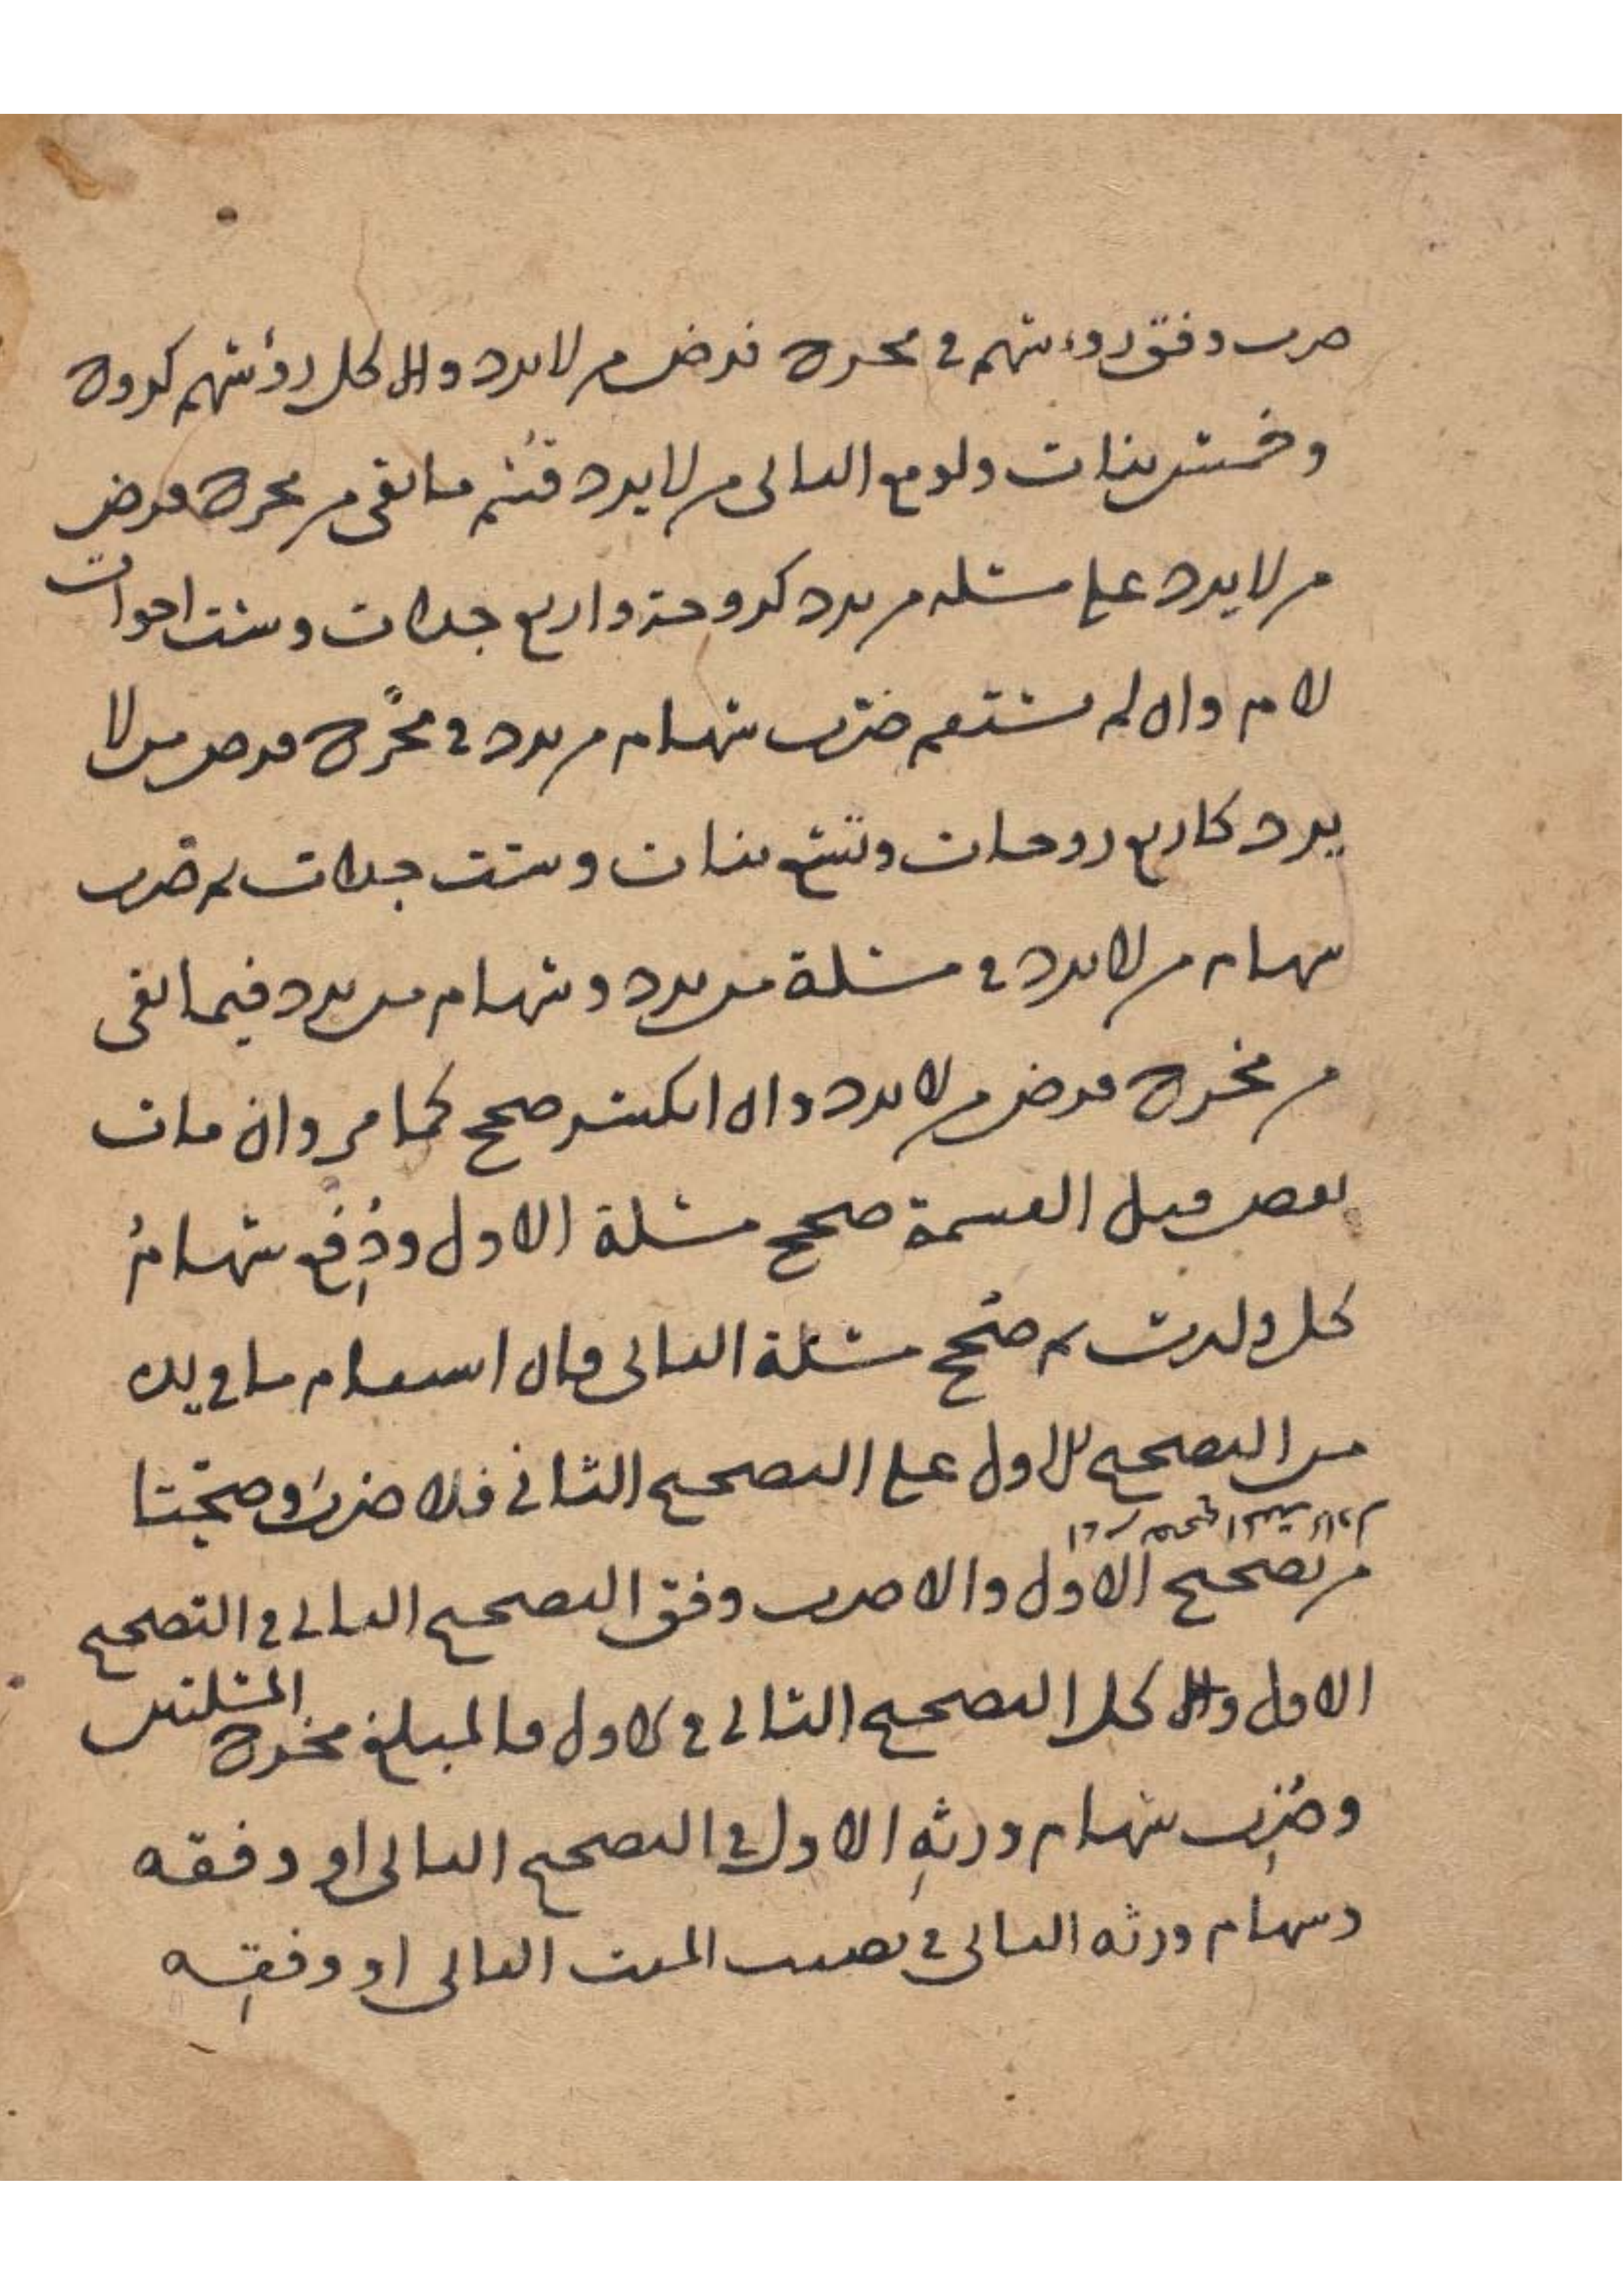 ضرب وفق روءسهم في مخرج فرض من لا يرد والا كل رؤسهم كزوج
وخمس بنات ولو مع الثاني من لا يرد قسم ما بقي من مخرج فرض
من لا يرد على مسئلة من يرد كزوجة واربع جدات وست اخوات
لام وان لم يستقم ضرب سهام من يرد في مخرج فرض من لا
يرد كاربع زوجات وتسع بنات وست جدات ثم ضرب
سهام من لا يرد في مسئلة من يرد وسهام من يرد فيما بقي
من مخرج فرض من لا يرد وان انكسر صحح كما مر وان مات
بعض قبل القسمة صحح مسئلة الاول ودفع سهام
كل وارث ثم صحح مسئلة الثاني فان استقام ما في يده
من التصحيح الاول على التصحيح الثاني فلا ضرب وصحتا
من تصحيح الاول والا ضرب وفق التصحيح الثاني في التصحيح
الاول والا كل التصحيح الثاني في الاول فالمبلغ مخرج المسئلتين
وضرب سهام ورثة الاول في التصحيح الثاني او وفقه
وسهام ورثة الثاني في نصيب الميت الثاني او وفقه